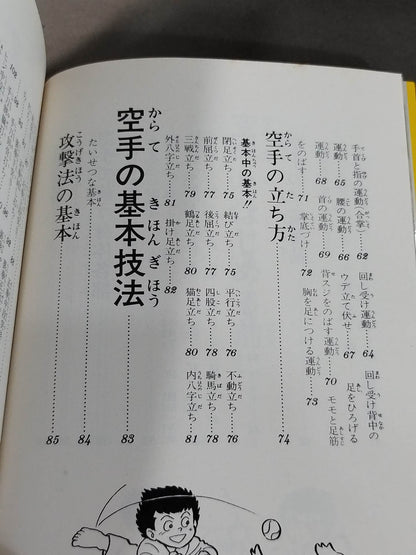 手首と指の運動 合掌 62 回し受け運動 64 回し受け背中の
運動 65 腰の運動 66 ウデ立て伏せ 67 足をひろげる
運動 68 首の運動 69 背スジをのばす運動 70 モモと足筋
をのばす 71 掌底づけ 72 胸を足につける運動 73
空手の立ち方 74
基本中の基本!!
閉足立ち 75 結び立ち 75 平行立ち 76 不動立ち 76
前屈立ち 77 後屈立ち 77 四股立ち 78 騎馬立ち 78
三戦立ち 79 鶴足立ち 80 猫足立ち 80 内八字立ち 81
外八字立ち 81 掛け足立ち 82
空手の基本技法 83
たいせつな基本 84
攻撃法の基本 85